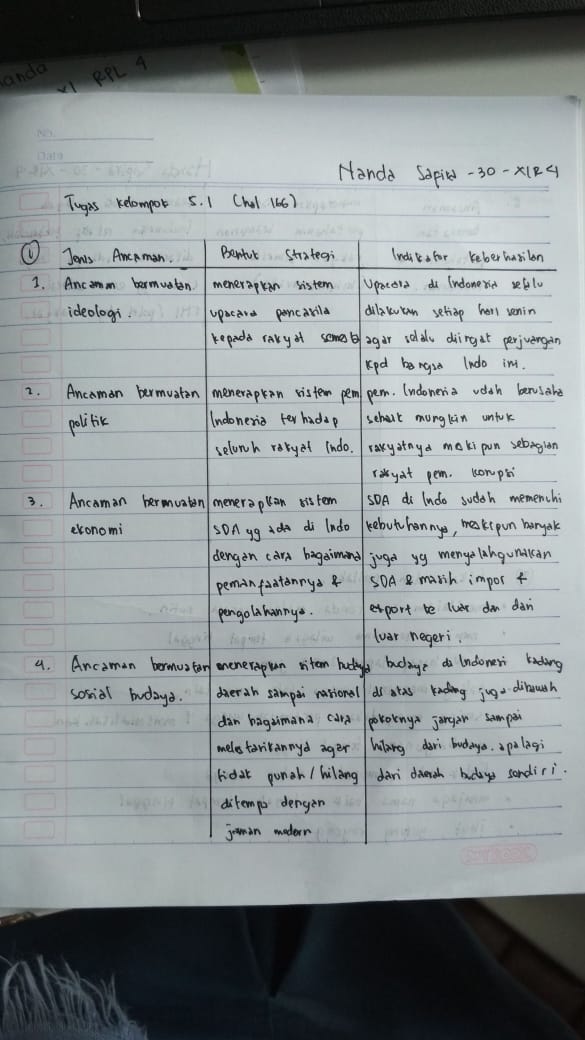 nanda
XI RPL 4
No.
Date
Nanda Sapira - 30 - XIR4
Tugas kelompok 5.1 (hal 166)
① Jenis Ancaman. Bentuk Strategi Indikator keberhasilan
1. Ancaman bermuatan ideologi.
menerapkan sistem
upacara pancasila
kepada rakyat semesta
Upacara di Indonesia selalu
dilakukan setiap hari senin
agar selalu diingat perjuangan
kpd bangsa Indo ini.
2. Ancaman bermuatan
politik
menerapkan sistem pem
Indonesia terhadap
seluruh rakyat Indo.
pem. Indonesia udah berusaha
sebaik mungkin untuk
rakyatnya meskipun sebagian
rakyat pem. korupsi
3. Ancaman bermuatan
ekonomi
menerapkan sistem
SDA yg ada di Indo
dengan cara bagaimana
pemanfaatannya &
pengolahannya.
SDA di Indo sudah memenuhi
kebutuhannya, meskipun banyak
juga yg menyalahgunakan
SDA & masih impor &
export ke luar dan dari
luar negeri.
4. Ancaman bermuatan
sosial budaya.
menerapkan sitem budaya
daerah sampai nasional
dan bagaimana cara
melestarikannya agar
tidak punah / hilang
ditempo dengan
jaman modern
budaya di Indonesi kadang
di atas kadang juga dibawah
pokoknya jangan sampai
hilang dari budaya. apalagi
dari daerah budaya sendiri.